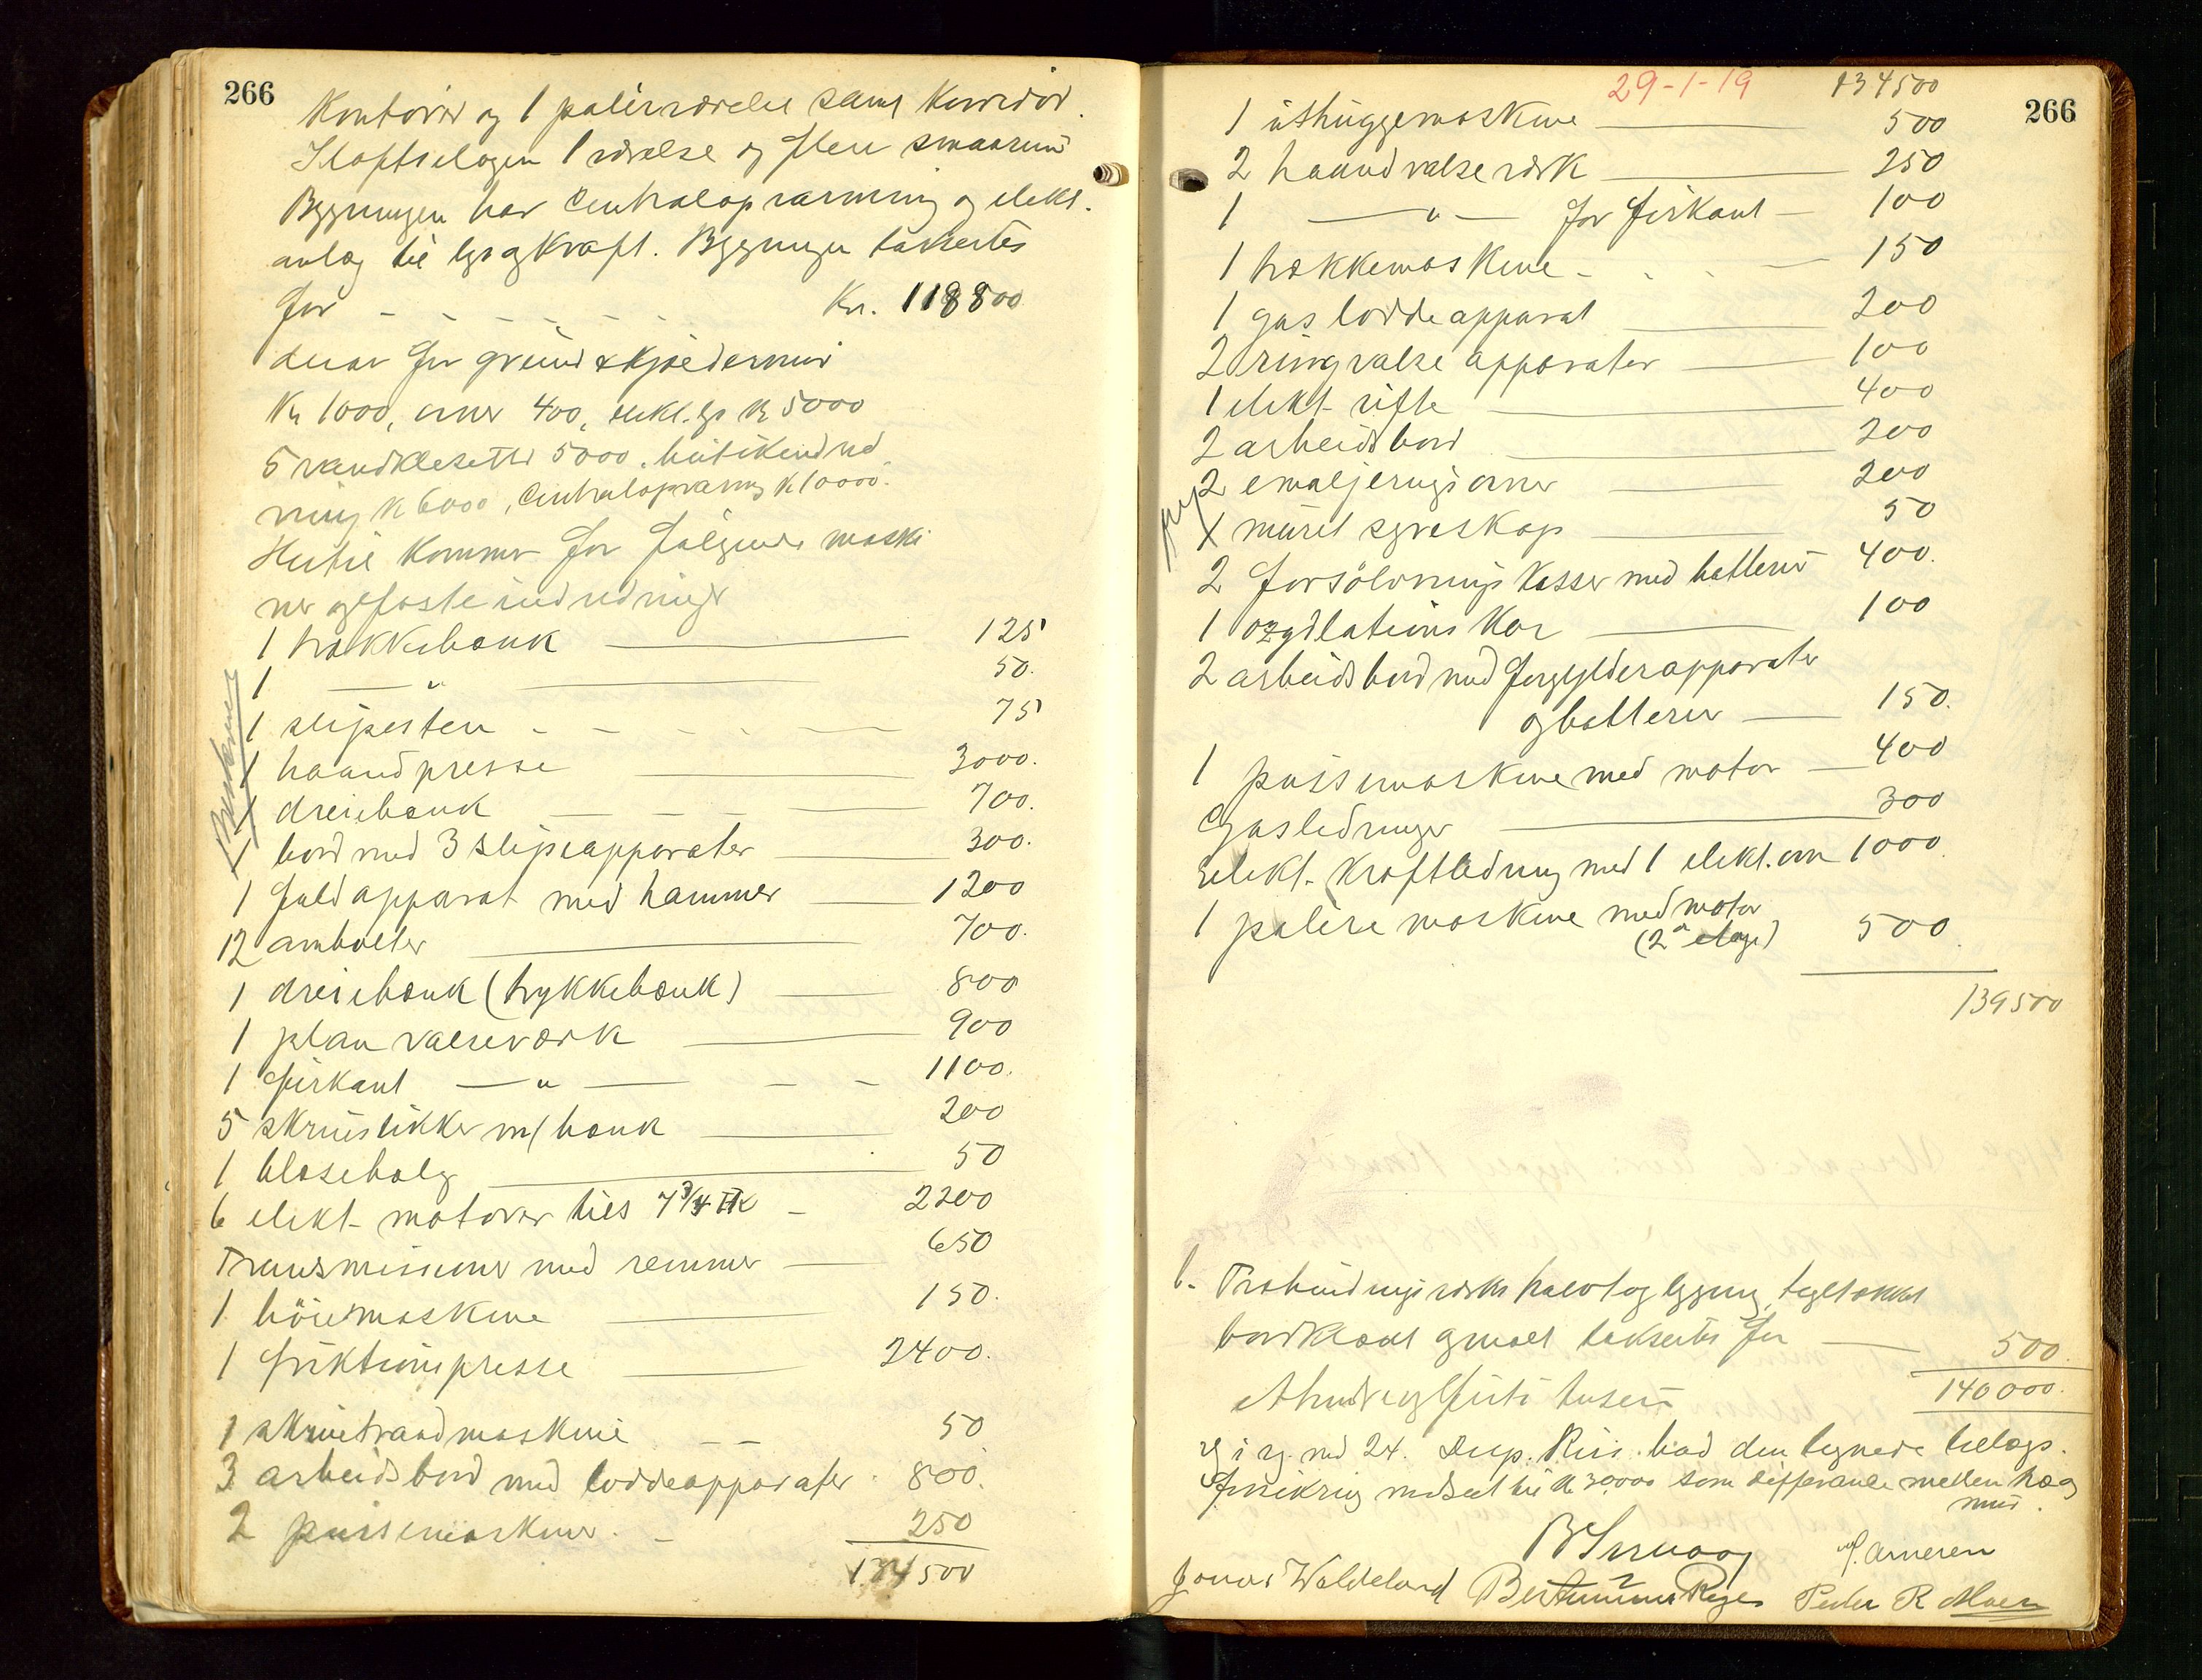 266
Kontorer og 1 polerværelse samt Korridor.
I loftsetagen 1 værelse og flere smaarum
Bygningen har Centralopvarming og elekt.
anlæg til lys og Kraft. Bygningen takseres
for - - - - - - Kr. 118800
derav for grund & Kjeldermur
Kr 1000, orner 400, elekt. lys Kr 5000
5 vandklosetter 5000, butikindred
ning Kr 6000, Centralopvarmg K 10000.
Hertil Kommer for følgende maski
ner og faste indredninger
1 trækkebænk 125
1 —"— 50.
1 slipesten - - - - 75
1 haandpresse 3000.
1 dreiebænk 700.
1 bord med 3 slipeapparater 300.
1 faldapparat med hammer 1200
12 ambolter 700.
1 dreiebænk (trykkebænk) 800
1 plan valseværk 900
1 firkant —"— - - 1100.
5 skruestikker m/ bænk 200
1 blæsebælg 50
6 elekt. motorer tils 7 3/4 HK - 2200
Transmissioner med remmer 650
1 böiemaskine 150.
1 friktionspresse 2400.
1 skruetraadmaskine - - 50
3 arbeidsbord med loddeapparater . 800.
2 pussemaskiner. - 250
134500
29-1-19 134500
266
1 uthuggemaskine 500
2 haandvalseværk 250
1 —"— for firkant - 100
1 trækkemaskine - . . - 150
1 gas loddeapparat 200
2 ringvalse apparater 100
1 elekt. vifte 400
2 arbeidsbord 200
2 emaljeringsovner 200
1 muret syreskap 50
2 forsölvnings Kasser med batterier 400.
1 oxydations Kar 100
2 arbeidsbord med forgylderapparater
og batterier 150.
1 pussemaskine med motor 400
Gasledninger 300
Elekt. Kraftledning med 1 elekt. ovn 1000
1 polere maskine med motor
(2den etage) 500.
139500
b. Træbindingsverks halvtagbygning, tegltækket
bordklædt og malt takseres for 500.
Et hundre og firti tusen 140000.
24. Disp. den tegnede tillægs.
forsikring nedsat til Kr 30000 som differanse mellem træ og
mur.
Jonas Waldeland Peder R Moen